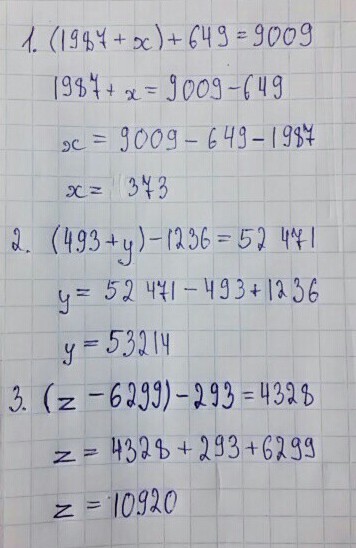 1. (1987 + x) + 649 = 9009
1987 + x = 9009 - 649
x = 9009 - 649 - 1987
x = 373
2. (493 + y) - 1236 = 52 471
y = 52 471 - 493 + 1236
y = 53214
3. (z - 6299) - 293 = 4328
z = 4328 + 293 + 6299
z = 10920